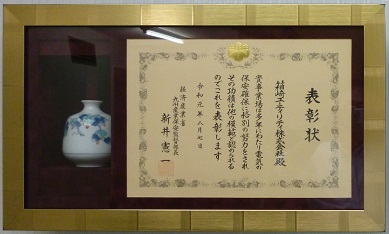 表彰状
箱崎ユーティリティ株式会社殿
貴事業場は多年にわたり電気の
保安確保に格別の努力をされ
その功績は他の模範と認められる
のでこれを表彰します
令和元年八月七日
経済産業省
新井憲一